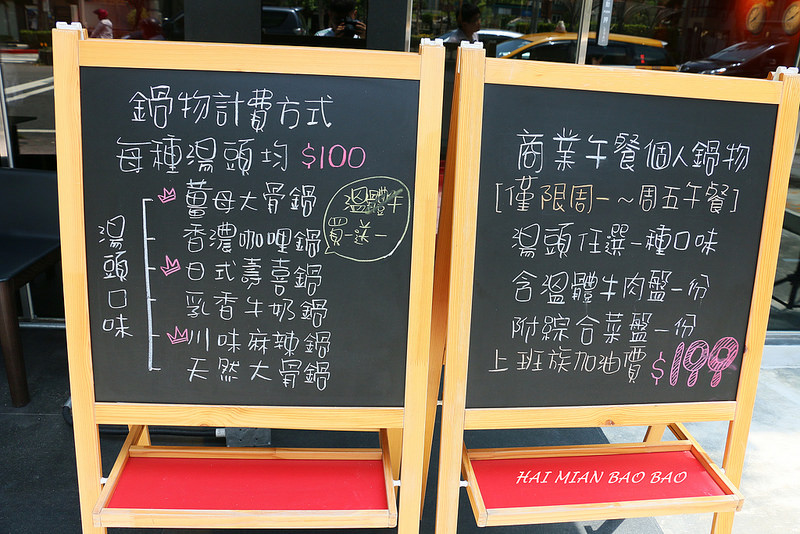 鍋物計費方式
每種湯頭均 $100
湯頭口味
薑母大骨鍋
香濃咖哩鍋
日式壽喜鍋
乳香牛奶鍋
川味麻辣鍋
天然大骨鍋
溫體牛
買一送一
商業午餐個人鍋物
[僅限周一~周五午餐]
湯頭任選一種口味
含溫體牛肉盤一份
附綜合菜盤一份
上班族加油費 $199
HAI MIAN BAO BAO